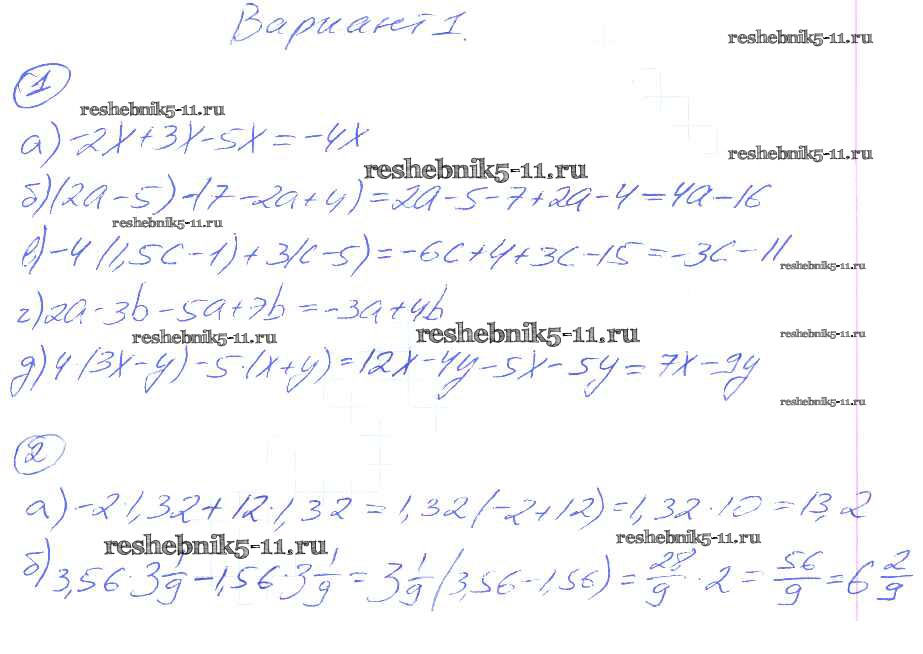 Вариант 1.
reshebnik5-11.ru
1
reshebnik5-11.ru
а) -2x+3x-5x=-4x
reshebnik5-11.ru
reshebnik5-11.ru
б) (2a-5)-(7-2a+4)=2a-5-7+2a-4=4a-16
reshebnik5-11.ru
в) -4(1,5c-1)+3(c-5)=-6c+4+3c-15=-3c-11
reshebnik5-11.ru
г) 2a-3b-5a+7b=-3a+4b
reshebnik5-11.ru
reshebnik5-11.ru
reshebnik5-11.ru
д) 4·(3x-y)-5·(x+y)=12x-4y-5x-5y=7x-9y
reshebnik5-11.ru
2
а) -2·1,32+12·1,32=1,32(-2+12)=1,32·10=13,2
reshebnik5-11.ru
reshebnik5-11.ru
б) 3,56·3 1/9-1,56·3 1/9=3 1/9(3,56-1,56)=28/9·2=56/9=6 2/9